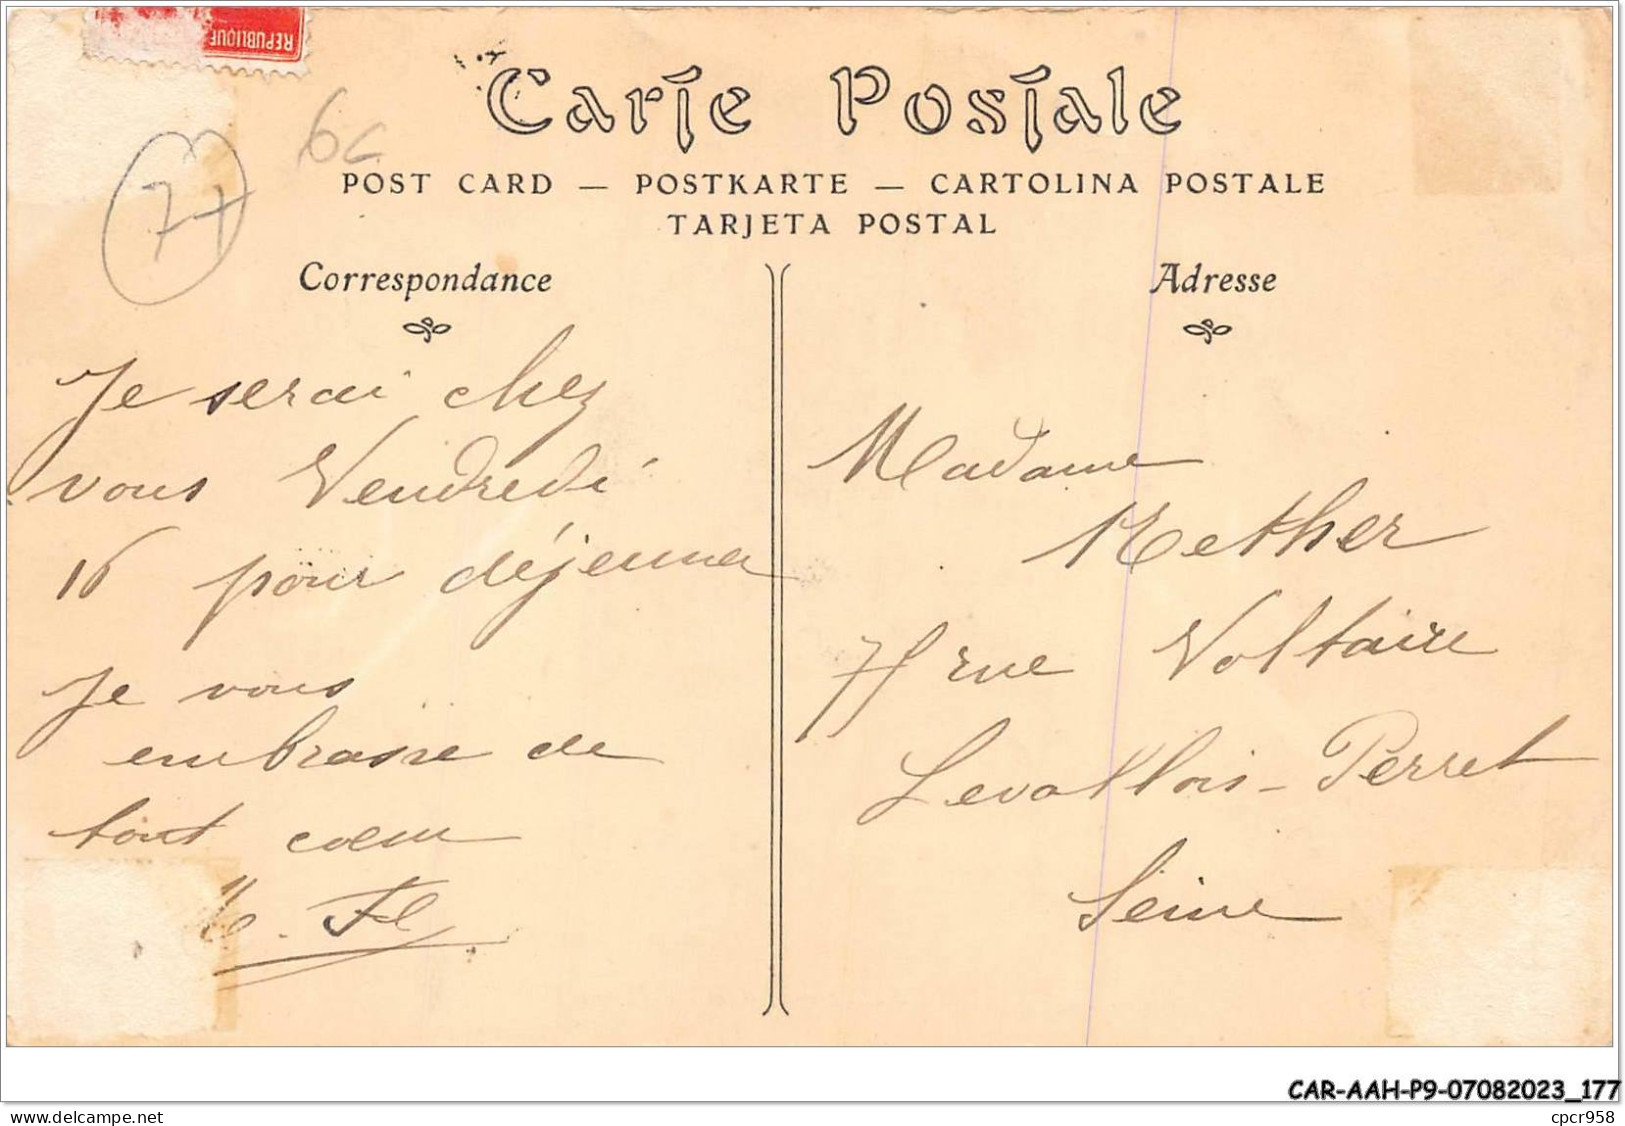 REPUBLIQUE
6c
77
Carte Postale
POST CARD — POSTKARTE — CARTOLINA POSTALE
TARJETA POSTAL
Correspondance
Je serai chez
vous Vendredi
16 pour déjeuner
Je vous
embrasse de
tout coeur
Adresse
Madame
Rether
rue Voltaire
Levallois-Perret
Seine
CAR-AAH-P9-07082023_177
www.delcampe.net
cpcr958